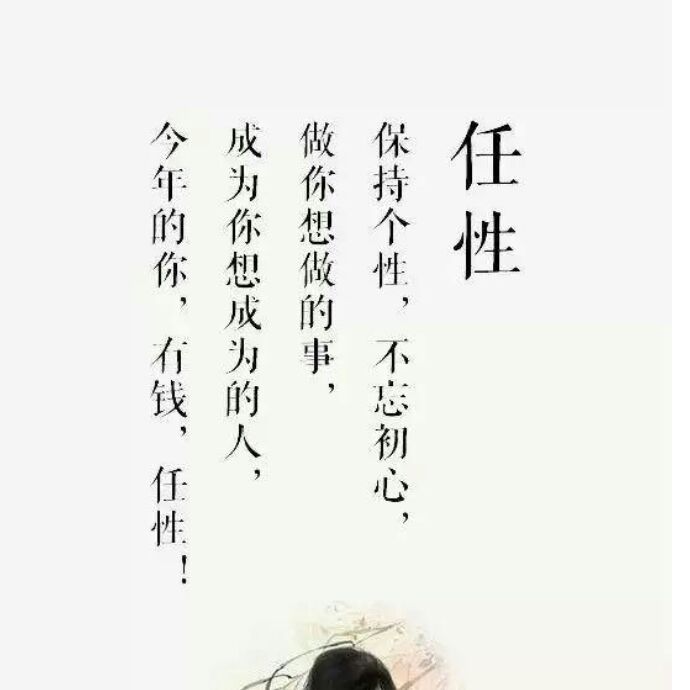 任性
保持个性，不忘初心，
做你想做的事，
成为你想成为的人，
今年的你，有钱，任性！